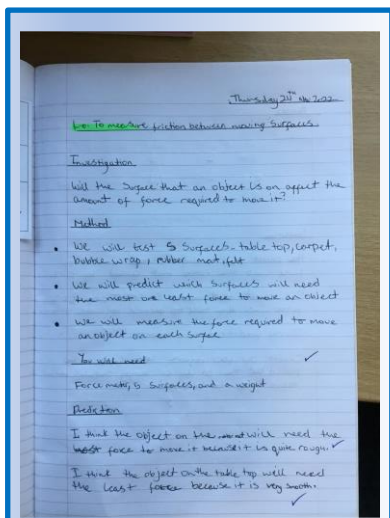 Thursday 24th Nov 2022
L.o: To measure friction between moving surfaces.
Investigation
Will the surface that an object is on affect the
amount of force required to move it?
Method
• We will test 5 surfaces - table top, carpet,
bubble wrap, rubber mat, felt
• We will predict which surfaces will need
the most and least force to move an object
• We will measure the force required to move
an object on each surface
You will need
Force meter, 5 surfaces, and a weight
Prediction
I think the object on the will need the
most force to move it because it is quite rough.
I think the object on the table top will need
the least force because it is very smooth.